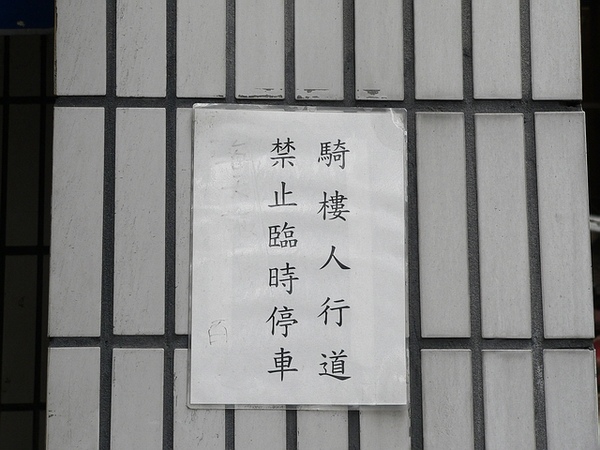 騎樓人行道
禁止臨時停車